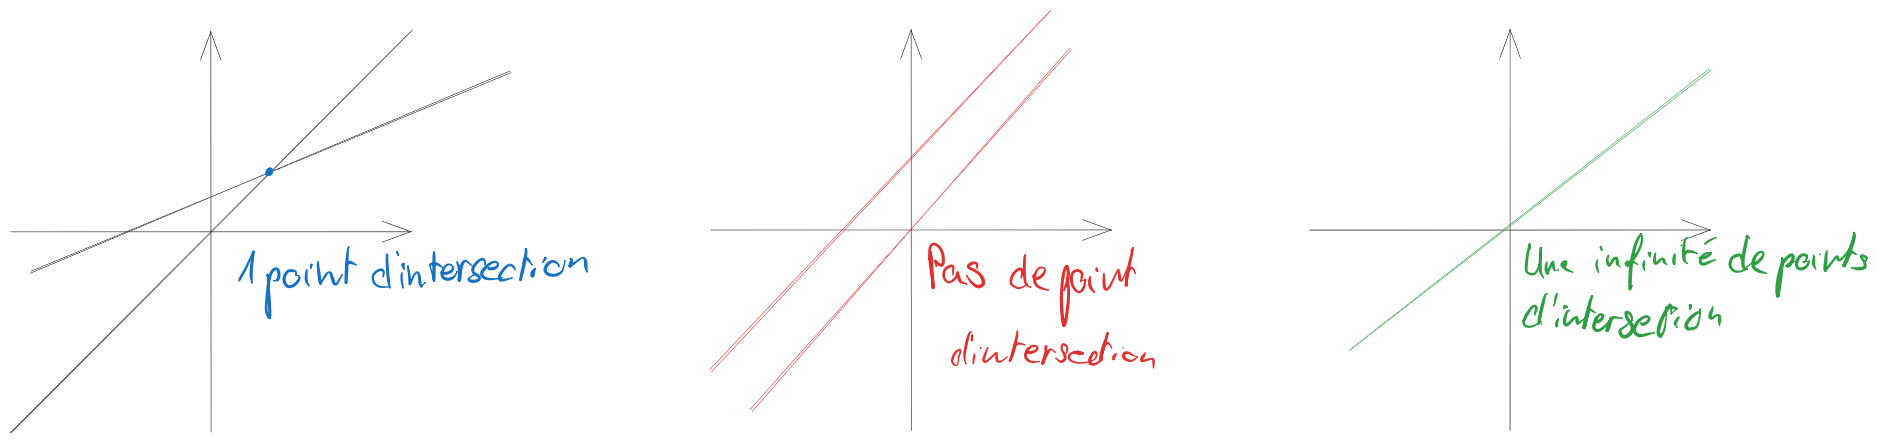 1 point d'intersection
Pas de point
d'intersection
Une infinité de points
d'intersetion